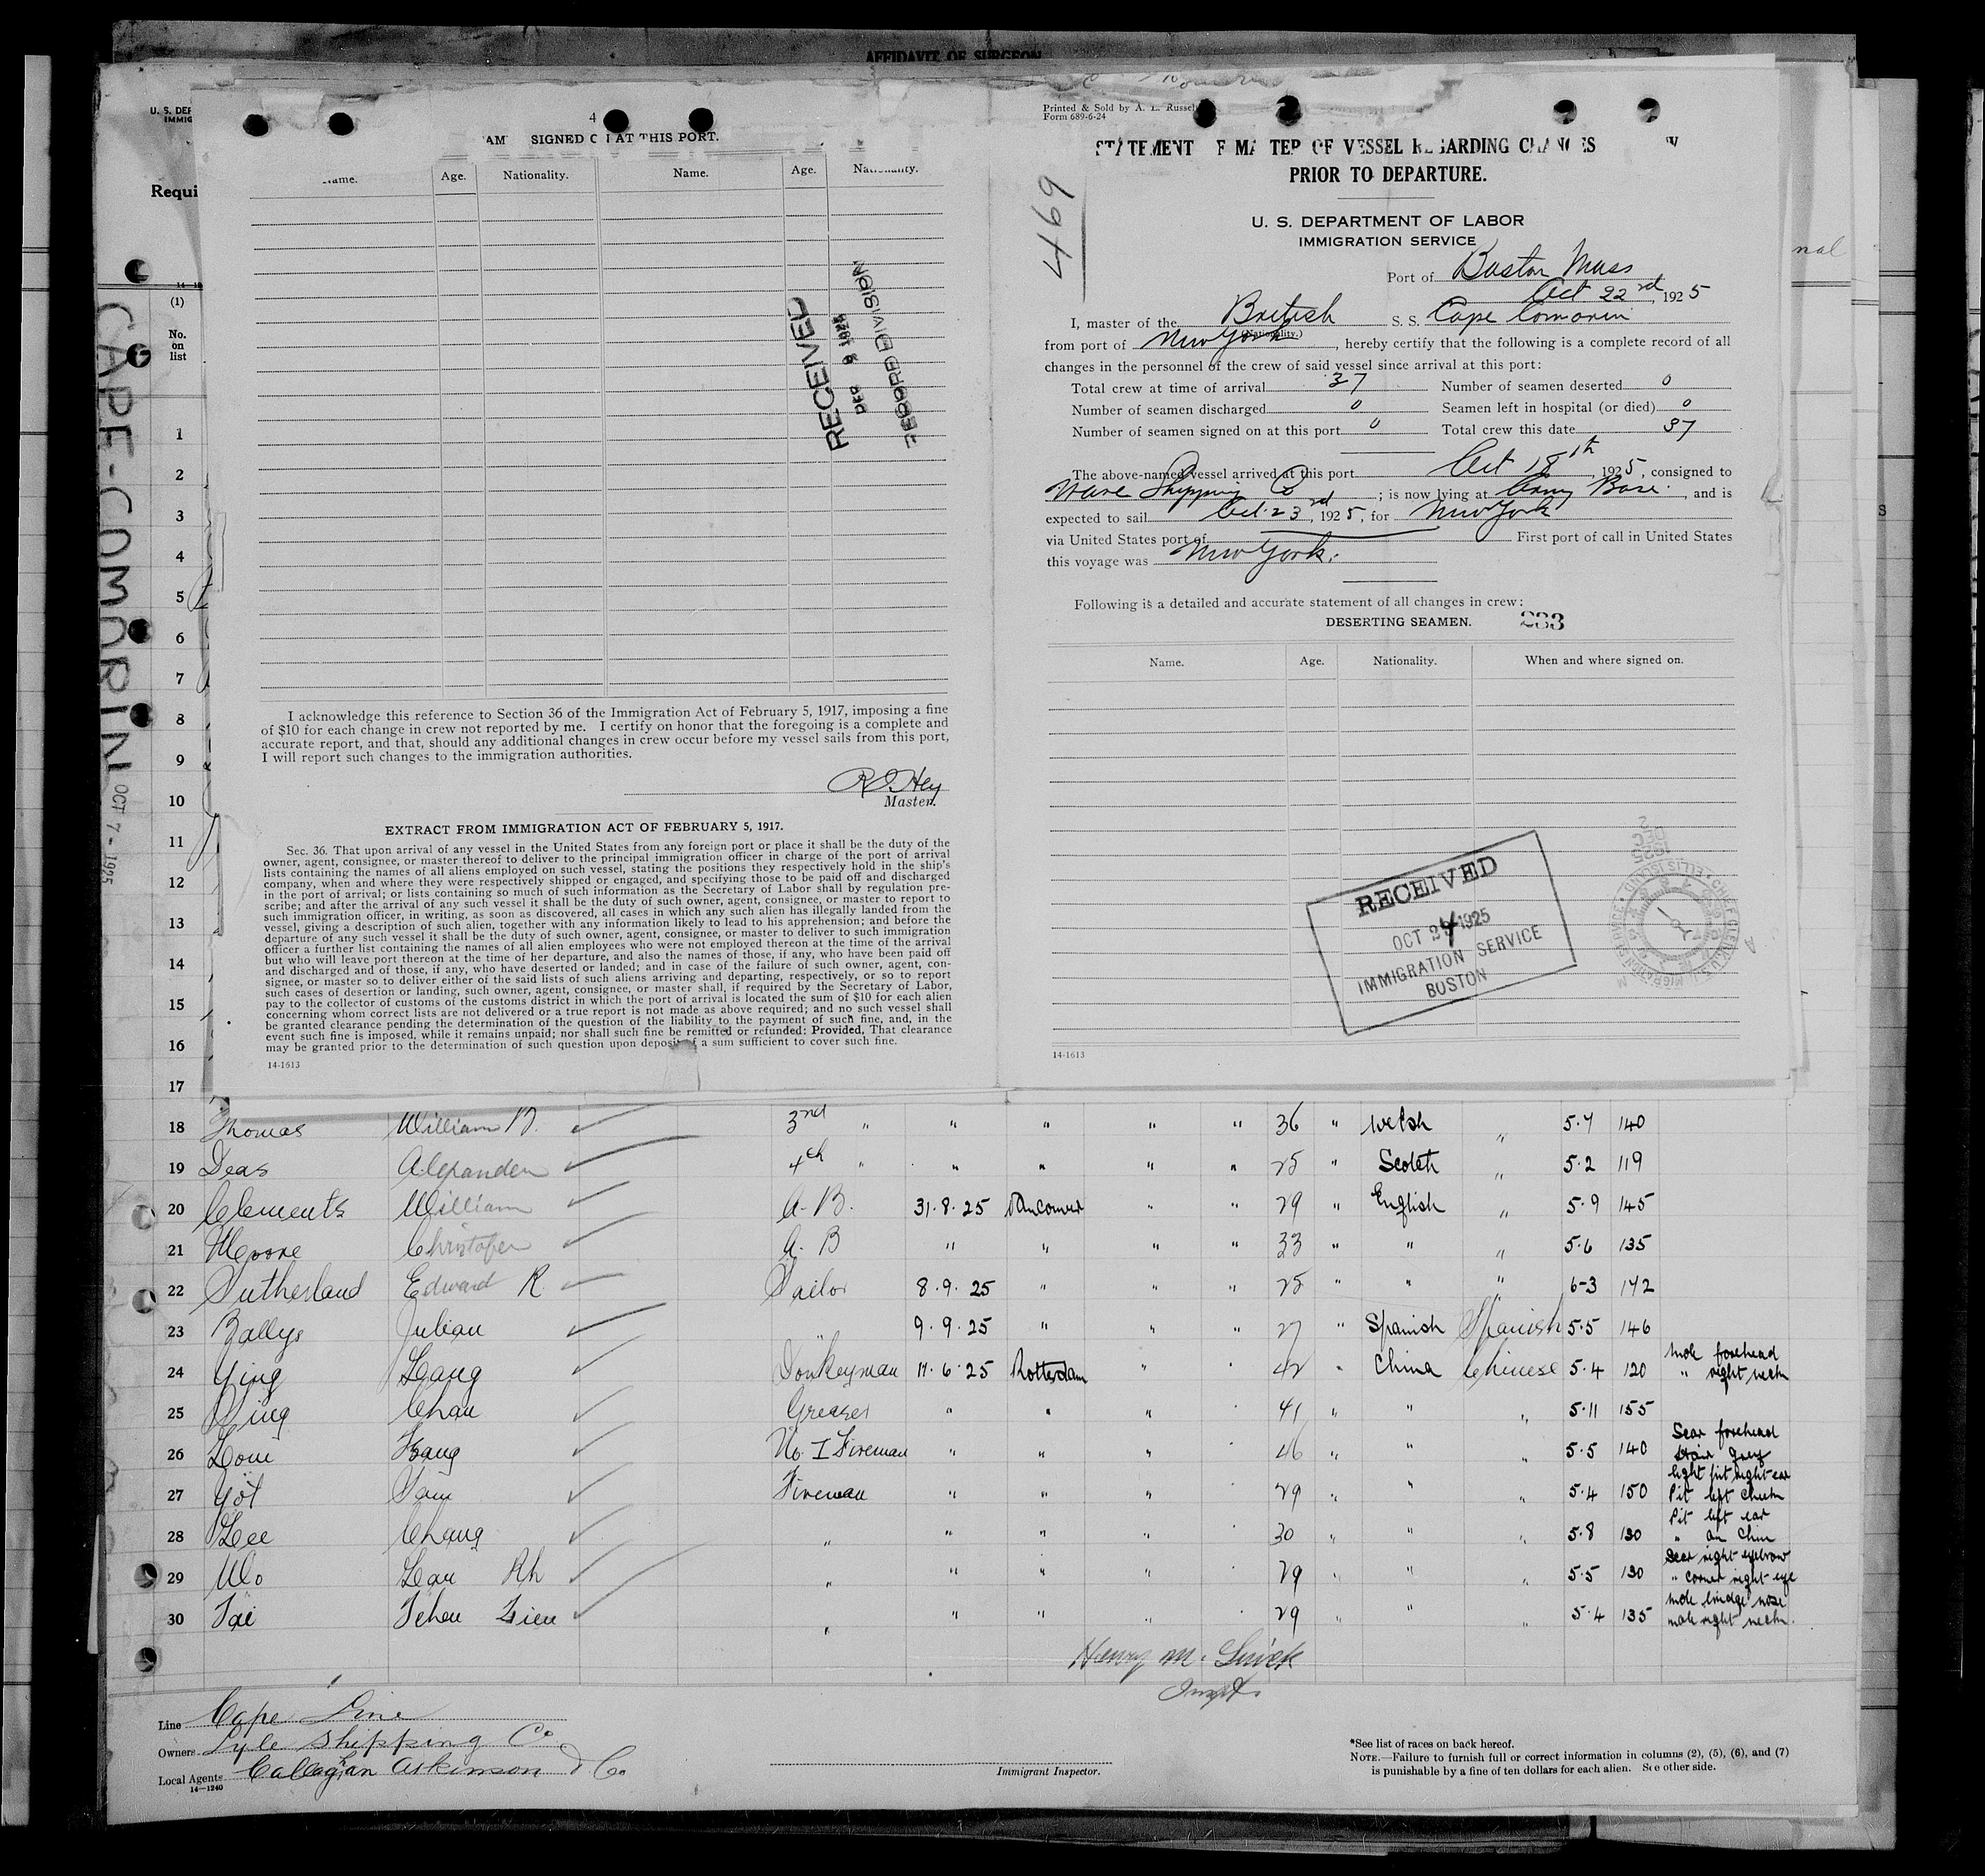 AFFIDAVIT OF SURGEON
U. S. DEP
IMMIG
Requi
(1)
No.
on
list
CAPE-COMORIN OCT 7 - 1925
4
SIGNED O AT THIS PORT.
Name. Age. Nationality. Name. Age. Nationality.
RECEIVED
DEC 9 1925
RECORD DIVISION
I acknowledge this reference to Section 36 of the Immigration Act of February 5, 1917, imposing a fine
of $10 for each change in crew not reported by me. I certify on honor that the foregoing is a complete and
accurate report, and that, should any additional changes in crew occur before my vessel sails from this port,
I will report such changes to the immigration authorities.
Master.
EXTRACT FROM IMMIGRATION ACT OF FEBRUARY 5, 1917.
Sec. 36. That upon arrival of any vessel in the United States from any foreign port or place it shall be the duty of the
owner, agent, consignee, or master thereof to deliver to the principal immigration officer in charge of the port of arrival
lists containing the names of all aliens employed on such vessel, stating the positions they respectively hold in the ship's
company, when and where they were respectively shipped or engaged, and specifying those to be paid off and discharged
in the port of arrival; or lists containing so much of such information as the Secretary of Labor shall by regulation pre-
scribe; and after the arrival of any such vessel it shall be the duty of such owner, agent, consignee, or master to report to
such immigration officer, in writing, as soon as discovered, all cases in which any such alien has illegally landed from the
vessel, giving a description of such alien, together with any information likely to lead to his apprehension; and before the
departure of any such vessel it shall be the duty of such owner, agent, consignee, or master to deliver to such immigration
officer a further list containing the names of all alien employees who were not employed thereon at the time of the arrival
but who will leave port thereon at the time of her departure, and also the names of those, if any, who have been paid off
and discharged and of those, if any, who have deserted or landed; and in case of the failure of such owner, agent, con-
signee, or master so to deliver either of the said lists of such aliens arriving and departing, respectively, or so to report
such cases of desertion or landing, such owner, agent, consignee, or master shall, if required by the Secretary of Labor,
pay to the collector of customs of the customs district in which the port of arrival is located the sum of $10 for each alien
concerning whom correct lists are not delivered or a true report is not made as above required; and no such vessel shall
be granted clearance pending the determination of the question of the liability to the payment of such fine, and, in the
event such fine is imposed, while it remains unpaid; nor shall such fine be remitted or refunded: Provided, That clearance
may be granted prior to the determination of such question upon deposit of a sum sufficient to cover such fine.
14-1613
Printed & Sold by A. L. Russel
Form 689-6-24
469
STATEMENT OF MASTER OF VESSEL REGARDING CHANGES
PRIOR TO DEPARTURE.
U. S. DEPARTMENT OF LABOR
IMMIGRATION SERVICE
Port of Boston Mass
Oct 22rd, 1925
I, master of the British S. S. Cape Comorin
(Nationality.)
from port of New York, hereby certify that the following is a complete record of all
changes in the personnel of the crew of said vessel since arrival at this port:
Total crew at time of arrival 37 Number of seamen deserted 0
Number of seamen discharged 0 Seamen left in hospital (or died) 0
Number of seamen signed on at this port 0 Total crew this date 37
The above-named vessel arrived at this port Oct 18th, 1925, consigned to
Shipping Co; is now lying at Army Base, and is
expected to sail Oct. 23rd, 1925, for New York
via United States port of First port of call in United States
this voyage was New York.
Following is a detailed and accurate statement of all changes in crew:
DESERTING SEAMEN. 233
Name. Age. Nationality. When and where signed on.
RECEIVED
OCT 24 1925
IMMIGRATION SERVICE
BOSTON
14-1613
1
2
3
4
5
6
7
8
9
10
11
12
13
14
15
16
17
18 Thomas William 3nd " " " " " 36 " Welsh " 5.7 140
19 Deas Alexander 4th " " " " " 25 " Scotch " 5.2 119
20 Clements William A.B. 31.8.25 Vancouver " " 29 " English " 5.9 145
21 Moore Christofer A.B " " " " 33 " " " 5.6 135
22 Sutherland Edward R Sailor 8.9.25 " " " 25 " " " 6-3 172
23 Zallys Julian " 9.9.25 " " " 27 " Spanish Spanish 5.5 146
24 Ying Leang Donkeyman 17.6.25 Rotterdam " " 42 " China Chinese 5.4 120 mole forehead " right neck
25 Ping Chan Greaser " " " " 41 " " " 5.11 155
26 Loui No. I Fireman " " " " 46 " " " 5.5 140 Scar forehead Hair grey
27 Yot Sam Fireman " " " " 29 " " " 5.4 150 light pit right ear Pit left cheek
28 Lee Chang " " " " " 30 " " " 5.8 130 Pit left ear " on Chin
29 Wo Lau Kh " " " " " 29 " " " 5.5 130 Scar right eyebrow " corner right eye
30 Tai Tchen Zien " " " " " 29 " " " 5.4 135 mole bridge nose mole right neck.
Henry M.
Inspt.
Line Cape Line
Owners Lyle Shipping Co.
Local Agents Callaghan Atkinson & Co
14-1240
Immigrant Inspector.
*See list of races on back hereof.
NOTE.—Failure to furnish full or correct information in columns (2), (5), (6), and (7)
is punishable by a fine of ten dollars for each alien. See other side.